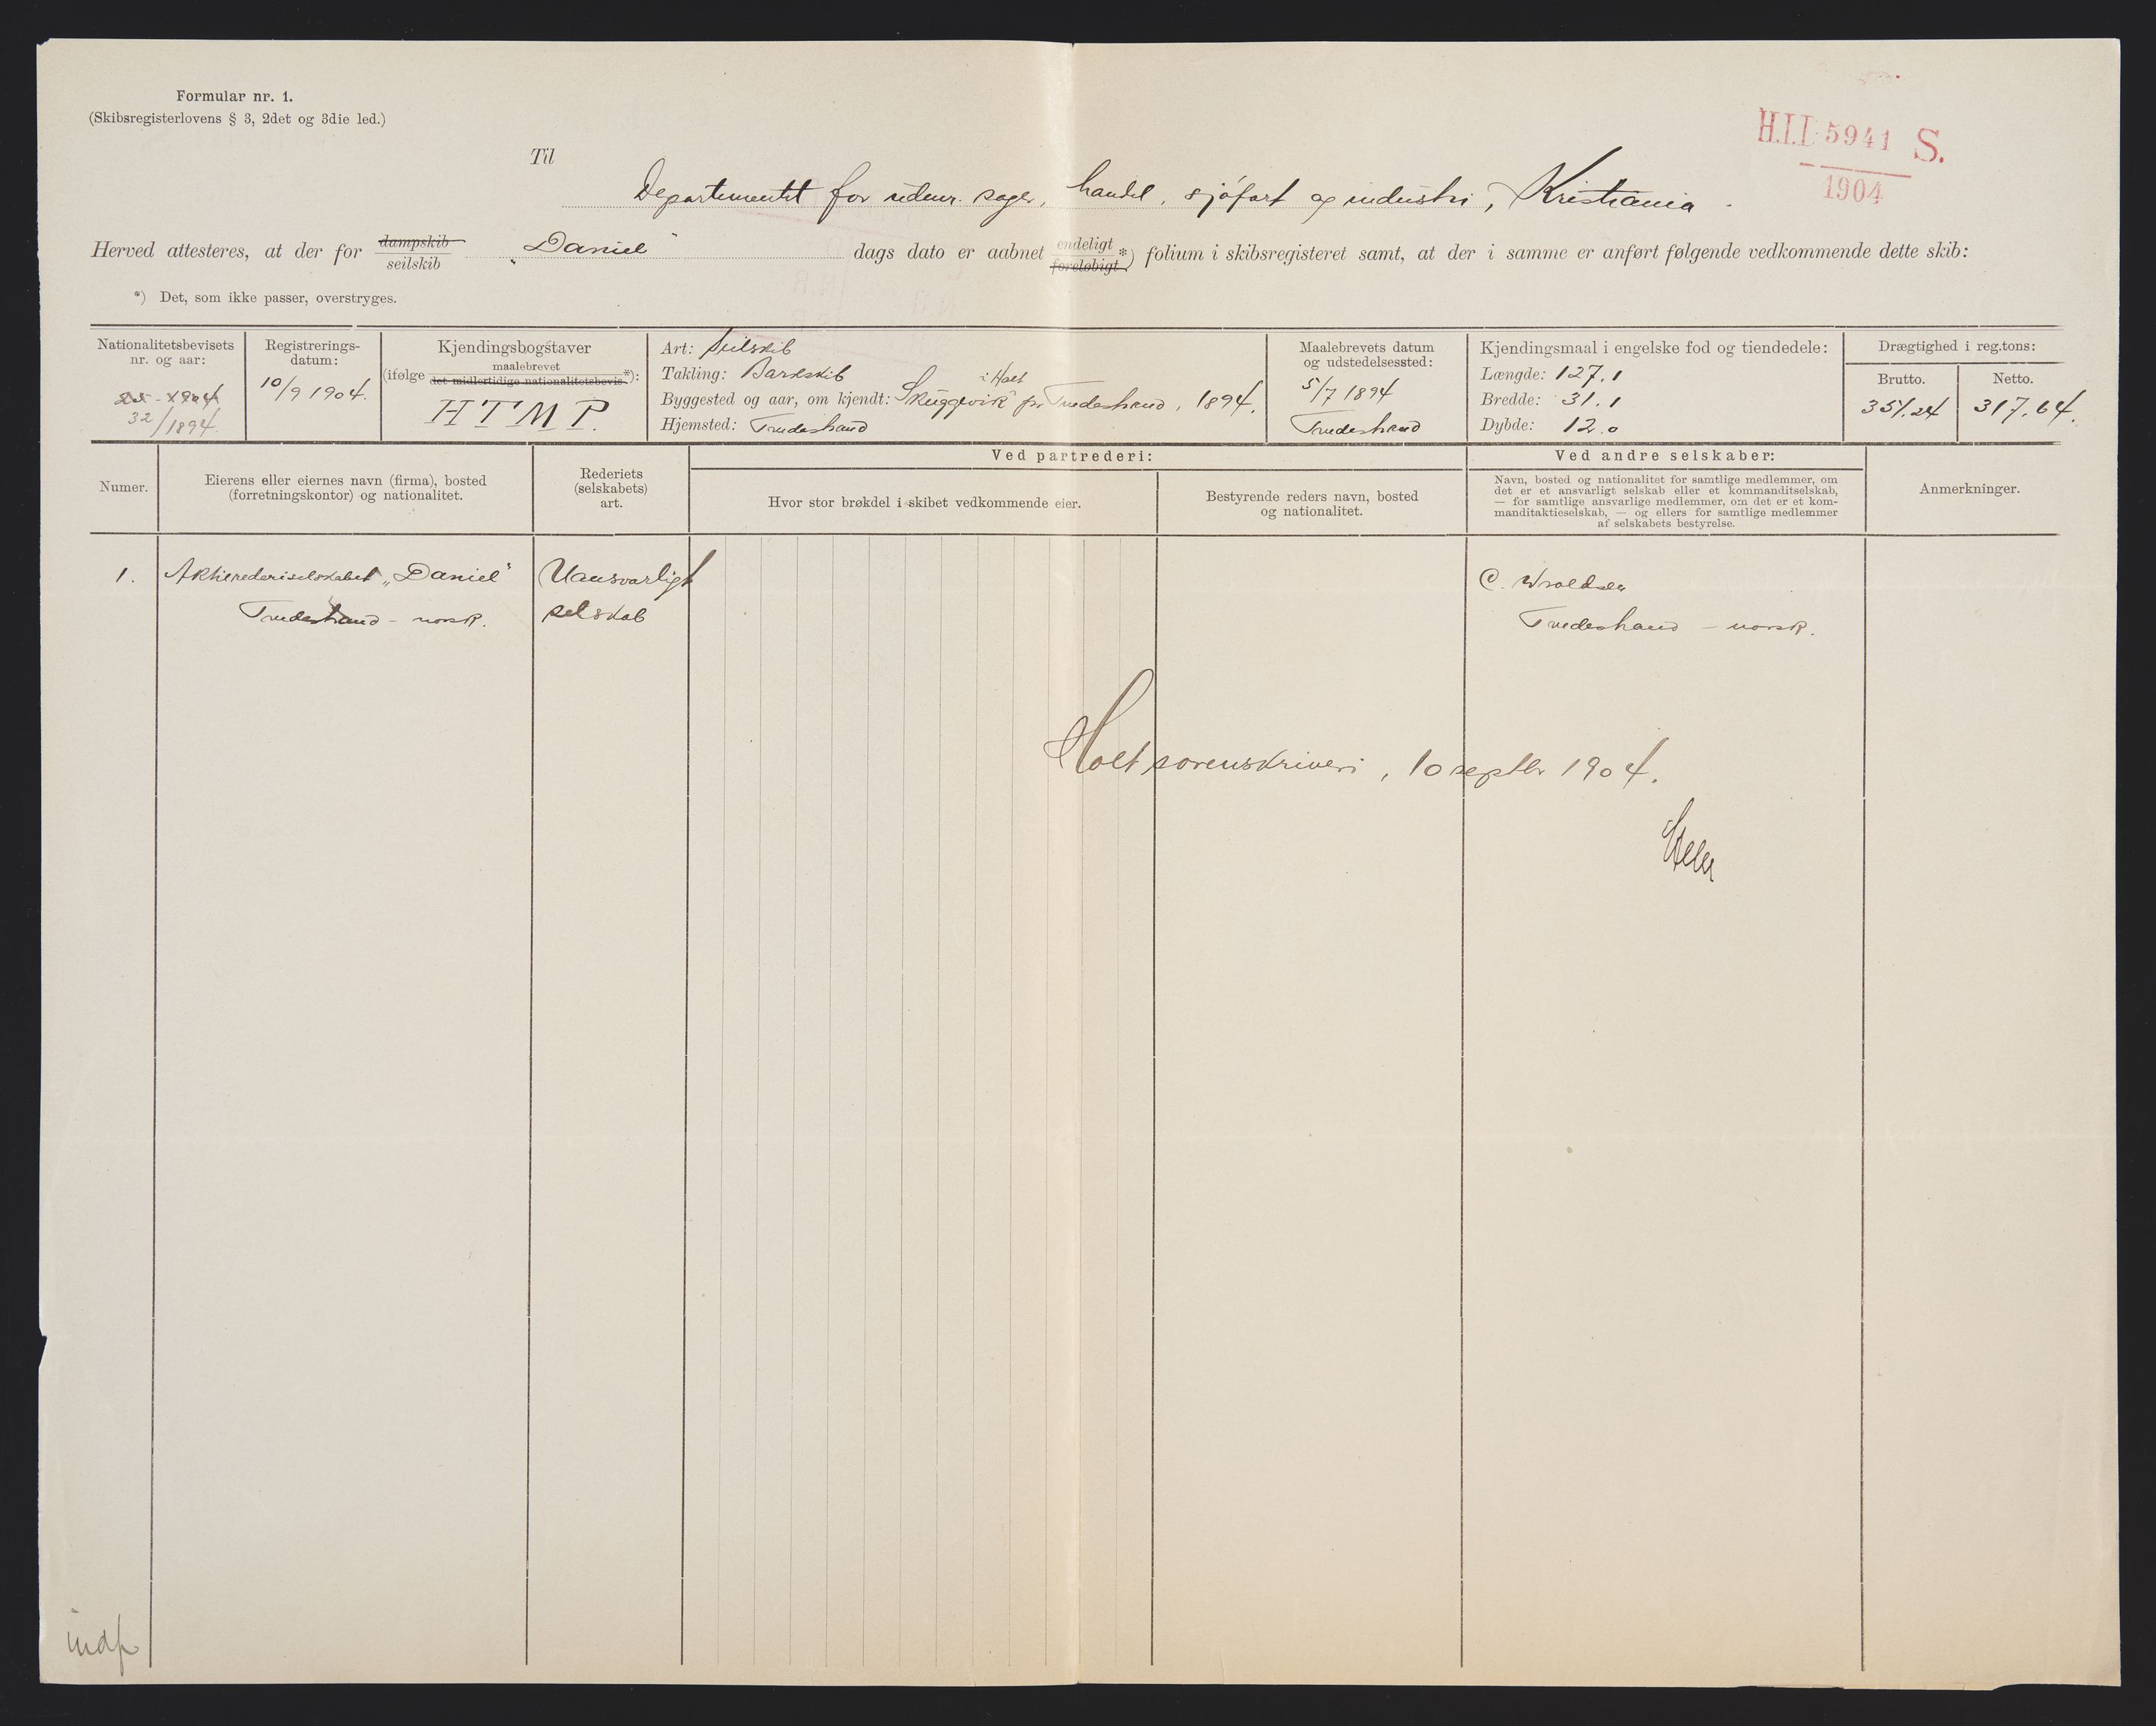 Formular nr. 1.
(Skibsregisterlovens § 3, 2det og 3die led.)
H.I.I. 5941 S.
1904
Til
Departementet for udenr. sager, handel, sjöfart og industri, Kristiania.
Herved attesteres, at der for dampskib seilskib „Daniel“ dags dato er aabnet endeligt foreløbigt *) folium i skibsregisteret samt, at der i samme er anført følgende vedkommende dette skib:
*) Det, som ikke passer, overstryges.
Nationalitetsbevisets
nr. og aar:
32/1894.
Registrerings-
datum:
10/9 1904.
Kjendingsbogstaver
(ifølge maalebrevet det midlertidige nationalitetsbevis *):
HTMP.
Art: Seilskib
Takling: Barkskib
Byggested og aar, om kjendt: Skuggevik i Holt pr. Tvedestrand, 1894.
Hjemsted: Tvedestrand
Maalebrevets datum
og udstedelsessted:
5/7 1894
Tvedestrand
Kjendingsmaal i engelske fod og tiendedele:
Længde: 127.1
Bredde: 31.1
Dybde: 12.0
Drægtighed i reg.tons:
Brutto. Netto.
351.24 317.64.
Numer.
Eierens eller eiernes navn (firma), bosted
(forretningskontor) og nationalitet.
Rederiets
(selskabets)
art.
Ved partrederi:
Hvor stor brøkdel i skibet vedkommende eier.
Bestyrende reders navn, bosted
og nationalitet.
Ved andre selskaber:
Navn, bosted og nationalitet for samtlige medlemmer, om
det er et ansvarligt selskab eller et kommanditselskab,
— for samtlige ansvarlige medlemmer, om det er et kom-
manditaktieselskab, — og ellers for samtlige medlemmer
af selskabets bestyrelse.
Anmerkninger.
1. Aktierederiselskabet „Daniel“ Uansvarligt C. Wroldsen
Tvedestrand – norsk. selskab Tvedestrand – norsk.
Holt sorenskriveri, 10 septbr 1904.
indf